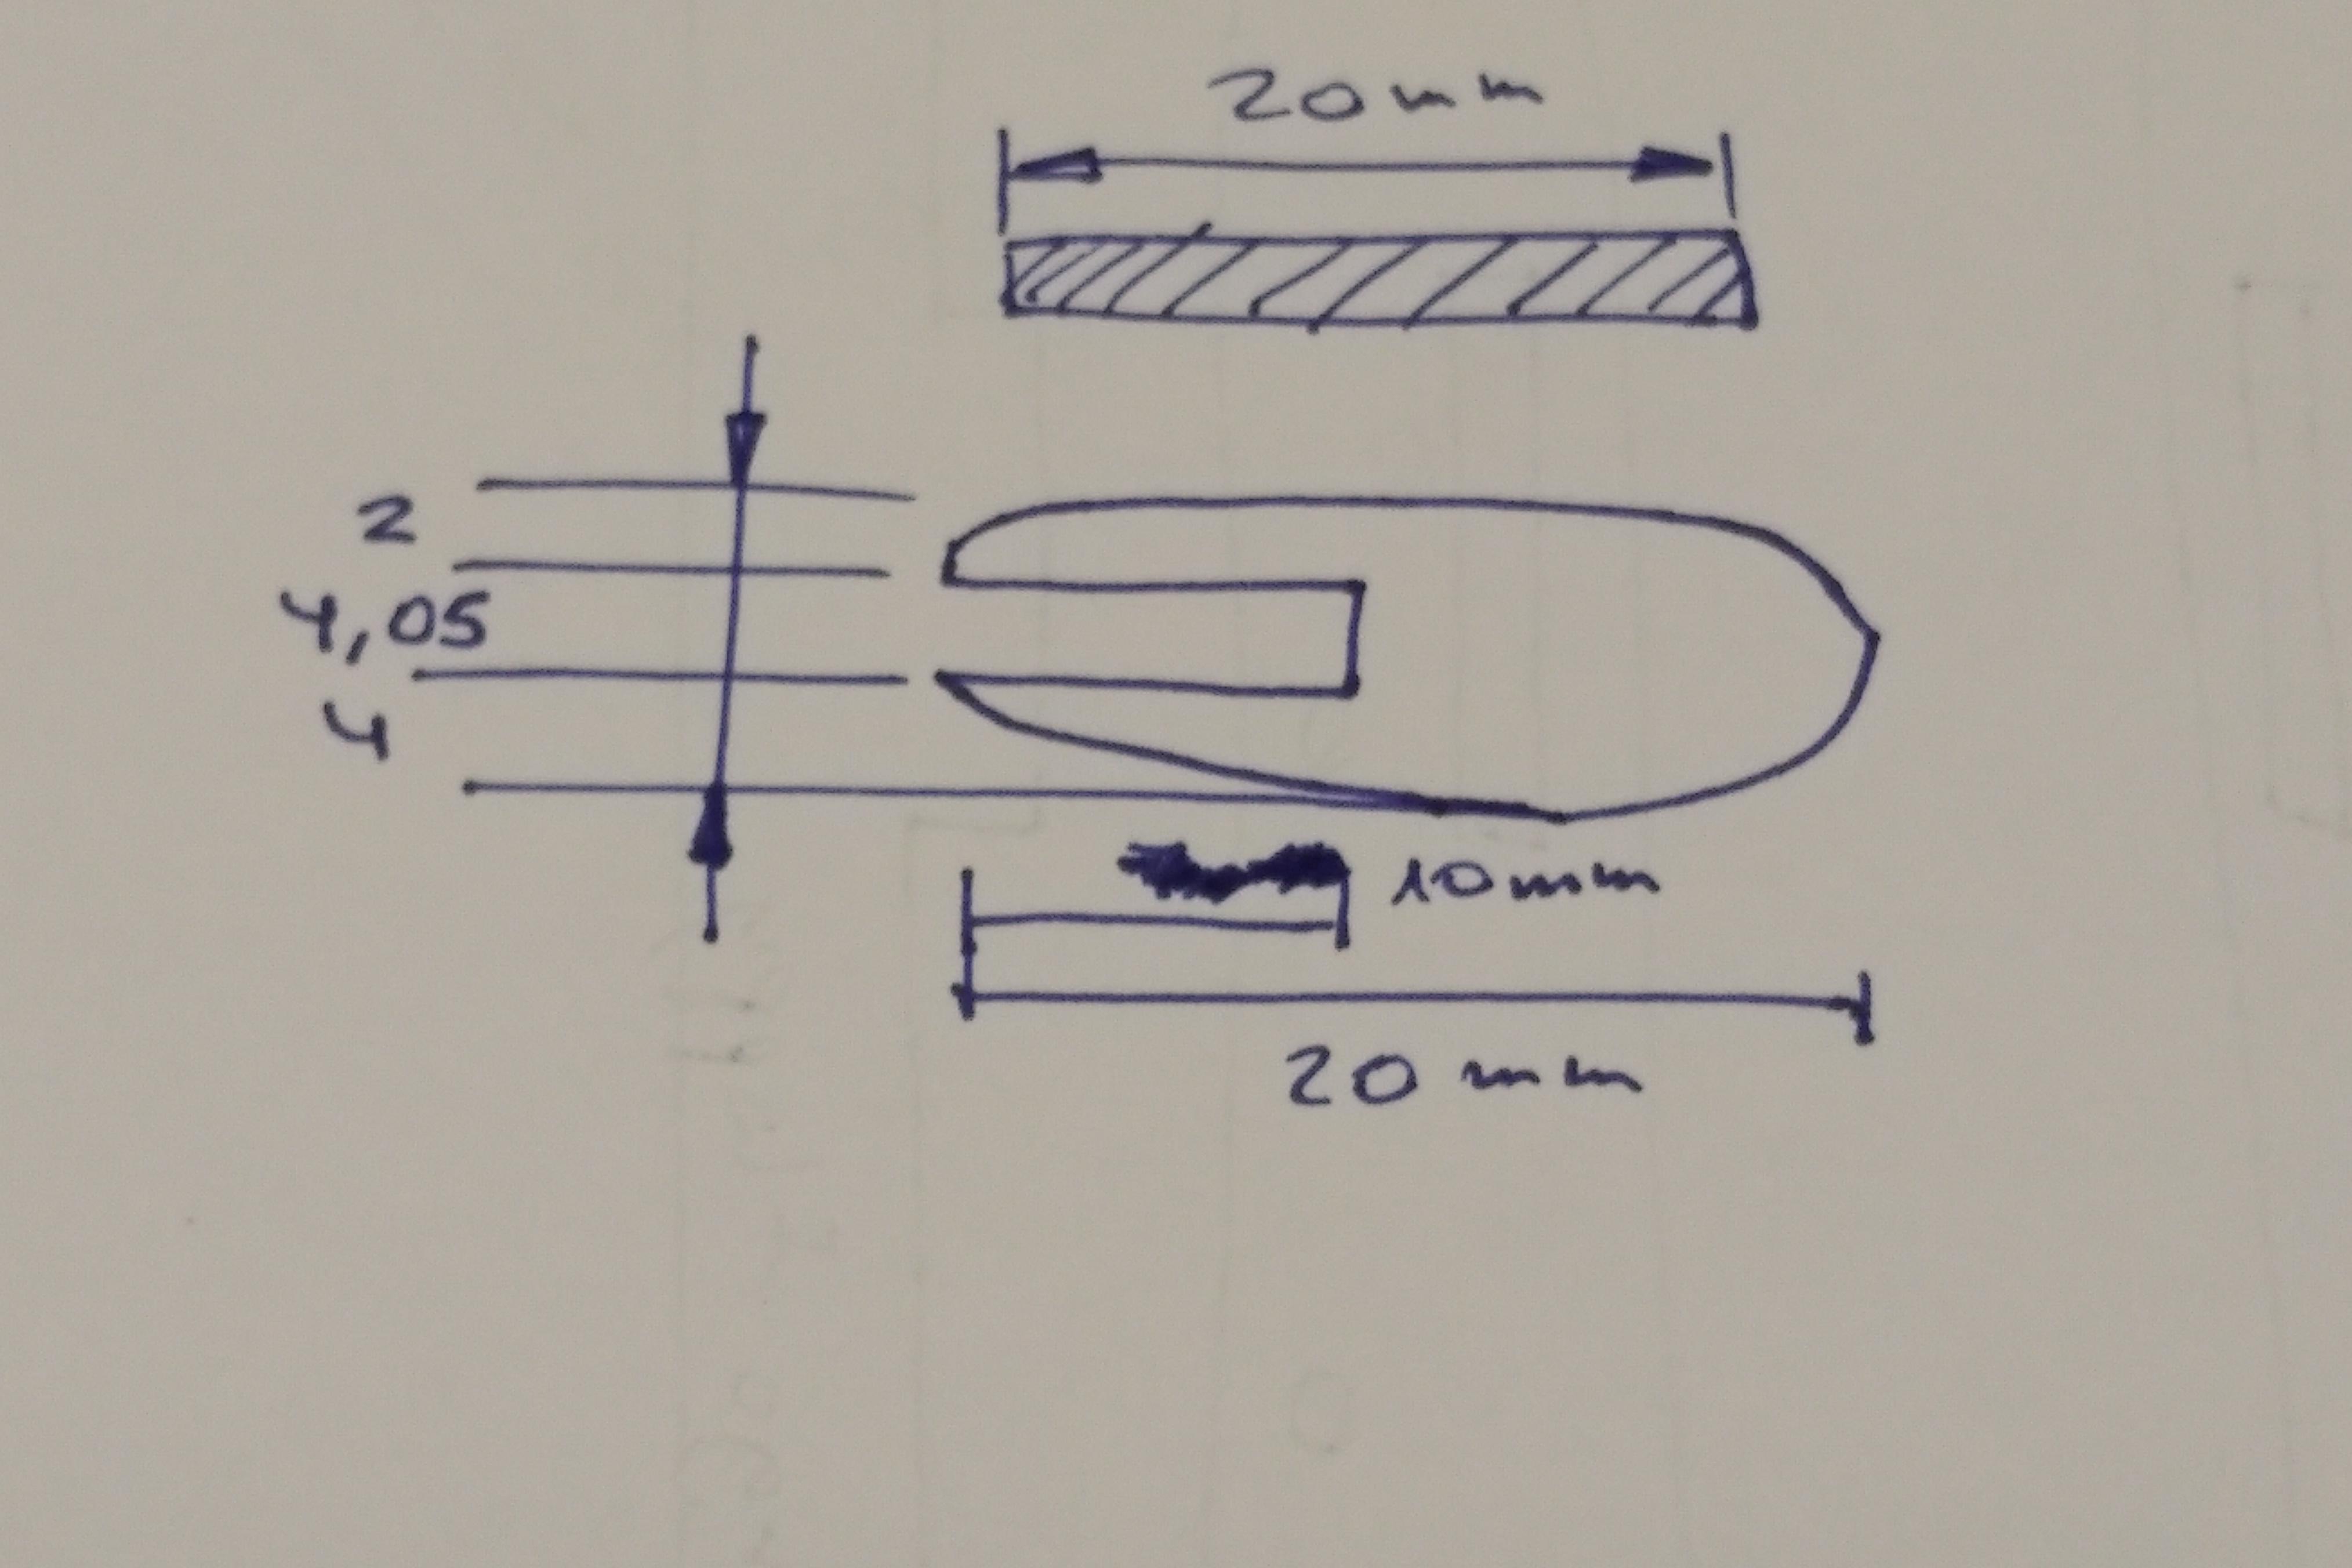 20mm
2
4,05
4
10mm
20 mm